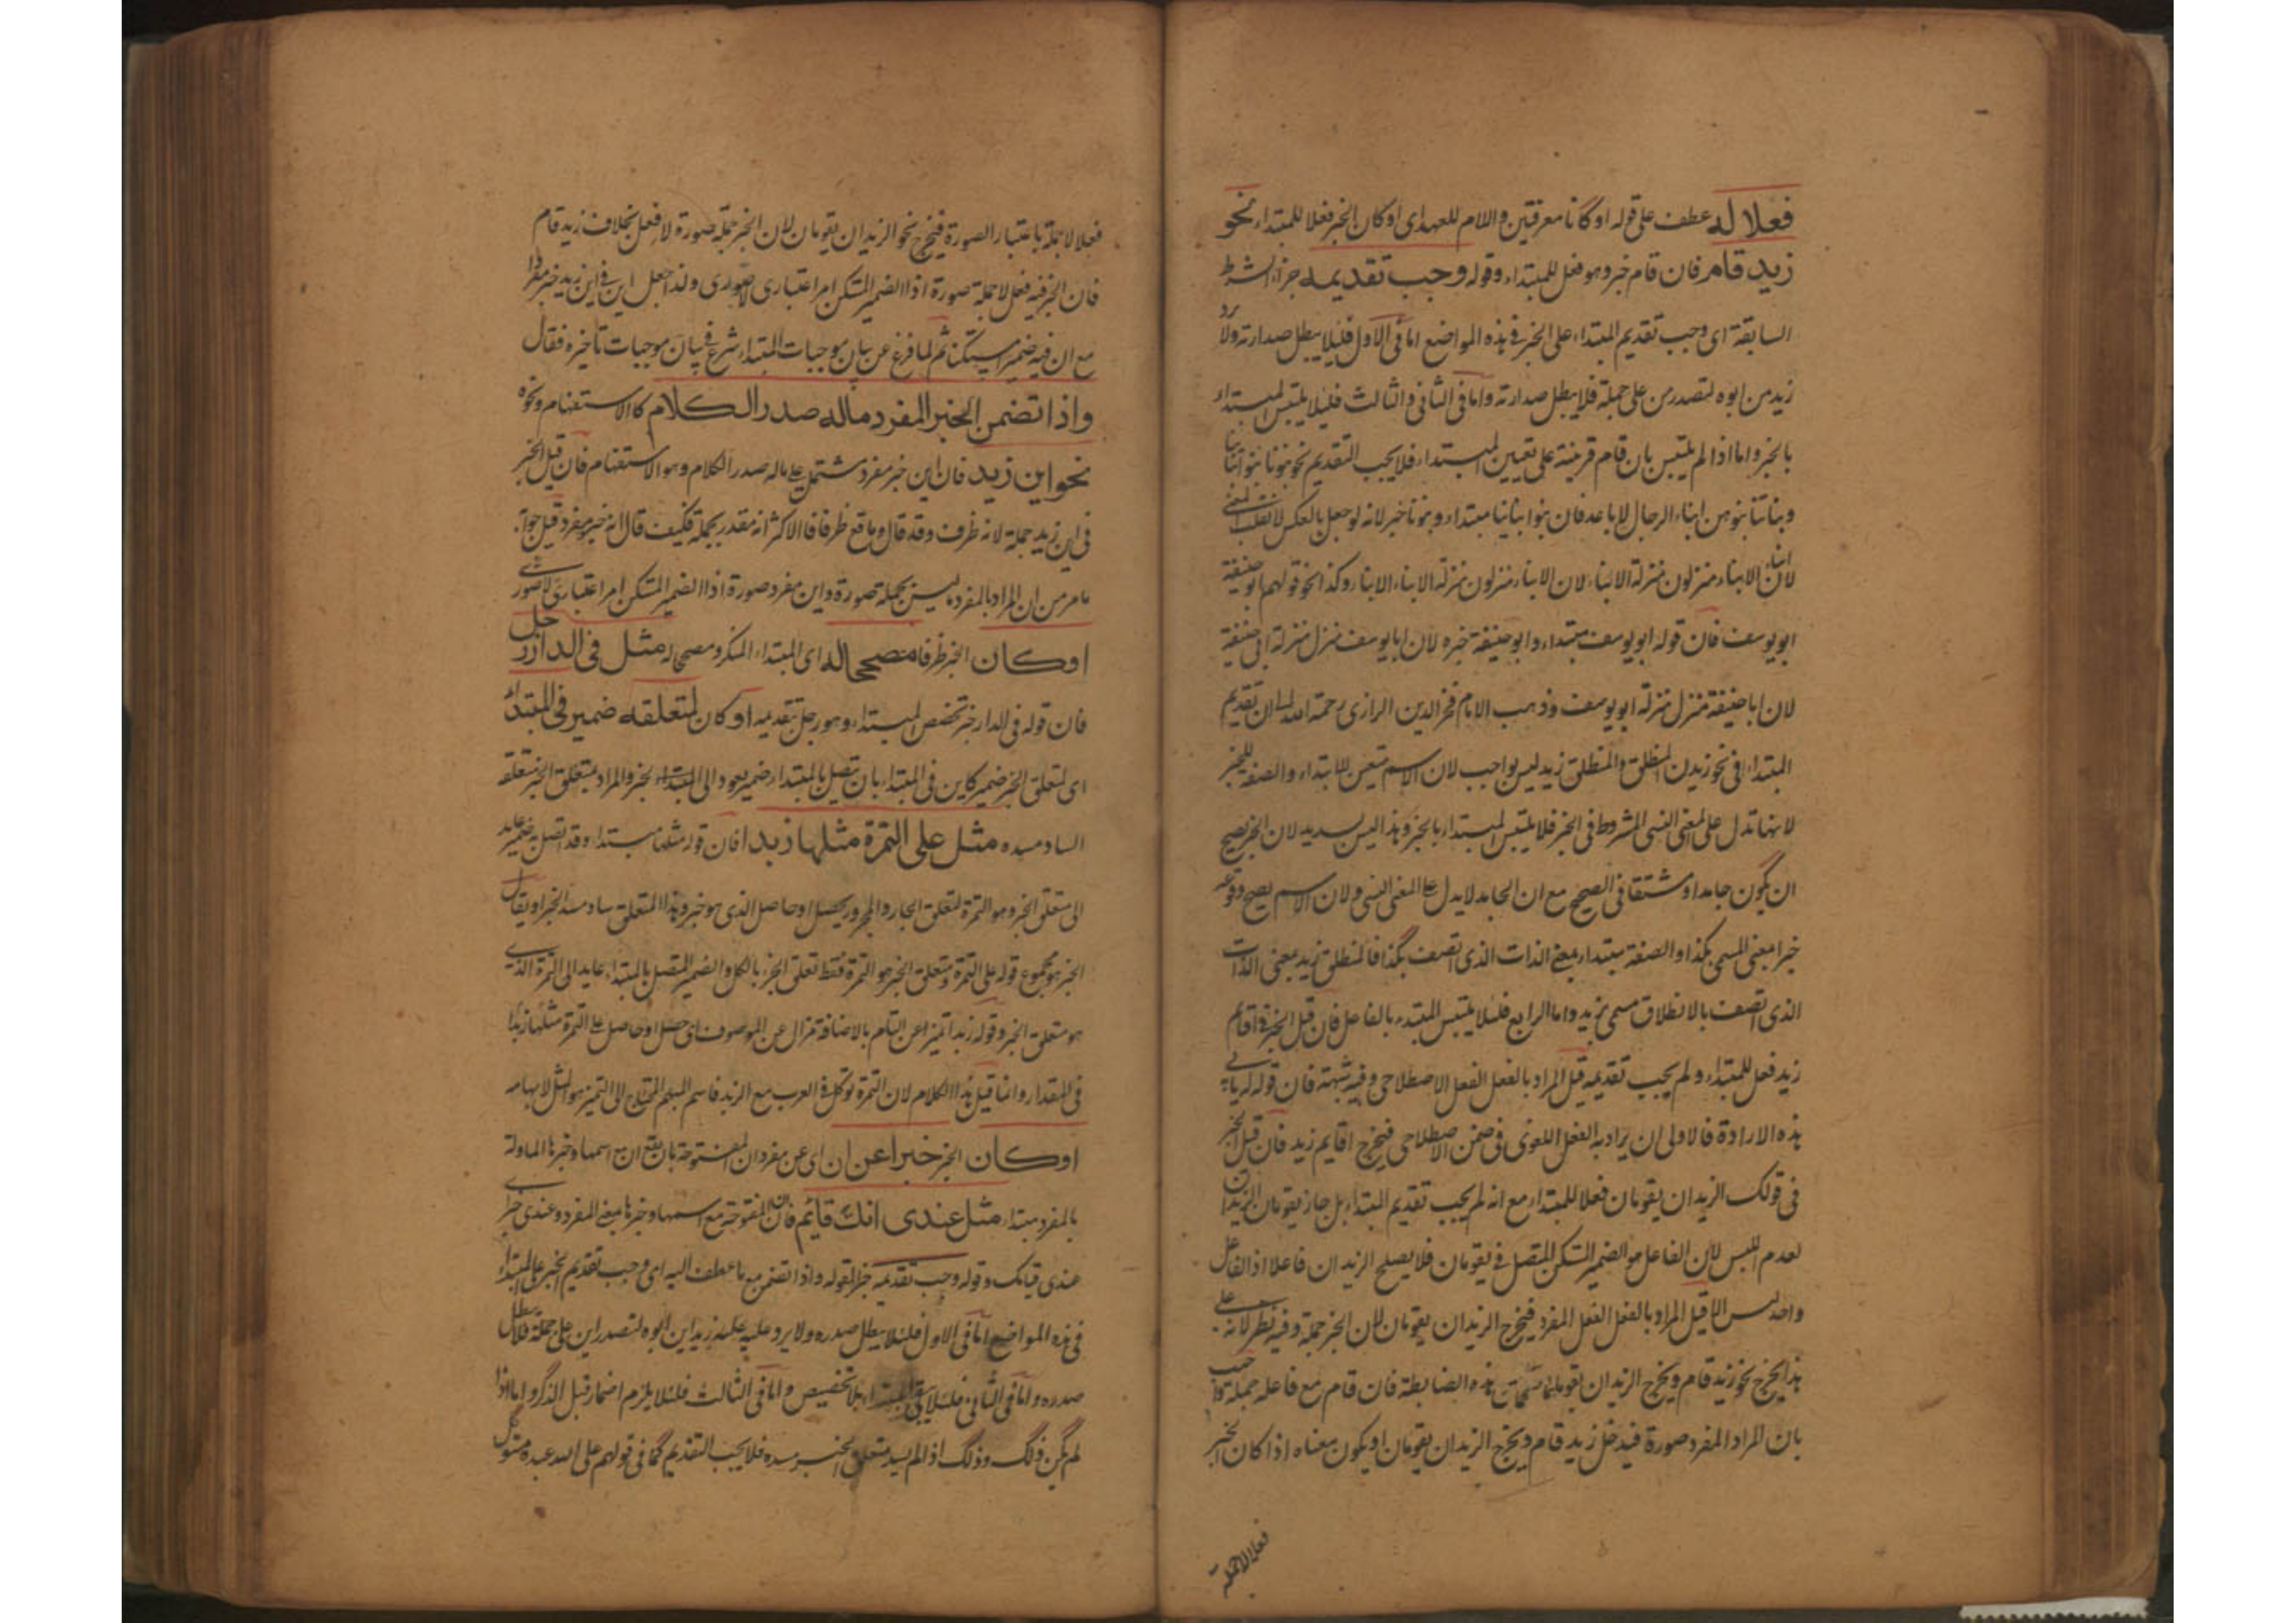 فعلا له عطف على قوله او كانا معرفتين واللام للعهد اى او كان الخبر فعلا للمبتداء نحو
زيد قام فان قام خبر وهو فعل للمبتداء وقوله وجب تقديمه جزاء الشرط
السابقة اى وجب تقديم المبتداء على الخبر فى هذه المواضع اما فى الاول فليلا يبطل صدارته ولا يرد
زيد من ابوه لتصدر من على جملة فلا يبطل صدارته واما فى الثانى والثالث فليلا يلتبس المبتداء
بالخبر واما اذا لم يلتبس بان قام قرينة على تعيين المبتداء فلا يجب التقديم نحو بنونا بنوا ابنائنا
وبناتنا بنوهن ابناء الرجال الاباعد فان بنوا ابنائنا مبتداء وبنونا خبر لانه لو جعل بالعكس لانقلب المعنى
لان ابناء الابناء منزلون منزلة الابناء لان الابناء منزلون منزلة الابناء الابناء وكذا نحو قولهم ابو حنيفة
ابو يوسف فان قوله ابو يوسف مبتداء وابو حنيفة خبره لان ابا يوسف منزل منزلة ابى حنيفة
لان ابا حنيفة منزل منزلة ابو يوسف وذهب الامام فخر الدين الرازى رحمة الله ان تقديم
المبتداء فى نحو زيدن المنطلق والمنطلق زيد ليس بواجب لان الاسم متعين للابتداء والصفة للخبر
لانها تدل على المعنى النسبى المشروط فى الخبر فلا يلتبس المبتداء بالخبر وهذا ليس بسديد لان الخبر يصح
ان يكون جامدا او مشتقا فى الصحيح مع ان الجامد لا يدل على المعنى النسبى ولان الاسم يصح وقوعه
خبرا بمعنى المسمى بكذا والصفة مبتداء بمعنى الذات الذى اتصف بكذا فالمنطلق زيد بمعنى الذات
الذى اتصف بالانطلاق مسمى بزيد واما الرابع فلئلا يلتبس المبتدء بالفاعل فان قيل الخبر فى اقايم
زيد فعل للمبتداء ولم يجب تقديمه قيل المراد بالفعل الفعل الاصطلاحى وفيه شبهة فان قوله له يابى
هذه الارادة فالاولى ان يراد به الفعل اللغوى فى ضمن الاصطلاحى فيخرج اقايم زيد فان قيل الخبر
فى قولك الزيدان يقومان فعلا للمبتداء مع انه لم يجب تقديم المبتداء بل جاز يقومان الزيدان
لعدم اللبس لان الفاعل هو الضمير المتكن المتصل فى يقومان فلا يصلح الزيدان فاعلا اذ الفاعل
واحد ليس الا قيل المراد بالفعل الفعل المفرد فيخرج الزيدان يقومان لان الخبر جملة وفيه نظر لانه على
هذا يخرج نحو زيد قام ويخرج الزيدان يقومان هذه الضابطة فان قام مع فاعله جملة
بان المراد المفرد صورة فيدخل زيد قام ويخرج الزيدان يقومان او يكون معناه اذا كان الخبر
فعلا لا جملة
فعلا لا جملة باعتبار الصورة فيخرج نحو الزيدان يقومان لان الخبر جملة صورة لا فعل بخلاف زيد قام
فان الخبر فيه فعل لا جملة صورة اذ الضمير المتكن امر اعتبارى لا صورى ولذا جعل اين فى اين زيد خبر مفردا
مع ان فيه ضميرا مستكنا ثم لما فرغ عن بيان موجبات المبتداء شرع فى بيان موجبات تاخيره فقال
واذا تضمن الخبر المفرد ماله صدر الكلام كالاستفهام ونحوه
نحو اين زيد فان اين خبر مفرد مشتمل على ماله صدر الكلام وهو الاستفهام فان قيل الخبر
فى اين زيد جملة لانه ظرف وقد قال وما وقع ظرفا فالاكثر انه مقدر بجملة فكيف قال انه خبر مفرد قيل جوابه
ما مر من ان المراد بالمفرد ما ليس بجملة صورة واين مفرد صورة اذ الضمير المتكن امر اعتبارى لا صورى
او كان الخبر ظرفا مصححا له اى المبتداء المنكر ومصححا له مثل فى الدار رجل
فان قوله فى الدار خبر تخصص المبتداء وهو رجل بتقديمه او كان لمتعلقه ضمير فى المبتداء
اى لمتعلق الخبر ضمير كاين فى المبتداء بان يتصل بالمبتداء ضمير يعود الى المبتداء بخبر والمراد بمتعلق الخبر متعلقه
الساد مسده مثل على التمرة مثلها زبدا فان قوله مثلها مبتداء وقد اتصل به ضمير عايد
الى متعلق الخبر وهو التمرة لتعلق الجار والمجرور بحصل او حاصل الذى هو خبر وهذا المتعلق ساد مسد الخبر او يقال
الخبر هو مجموع قوله على التمرة ومتعلق الخبر هو التمرة فقط تعلق الجزء بالكل والضمير المتصل بالمبتداء عايد الى التمرة الذى
هو متعلق الخبر وقوله زبدا تميز عن التام بالاضافة مزال عن الموصوف اى حصل او حاصل على التمرة مثلها زبدا
فى المقدار وانما قيل هذا الكلام لان التمرة توكل فى العرب مع الزبد فاسم المبهم المحتاج الى التميز هو المثل لابهامه
او كان الخبر خبرا عن ان اى عن مفرد ان المفتوحة بان يقع ان مع اسمها وخبرها الماولة
بالمفرد مبتداء مثل عندى انك قائم فان المفتوحة مع اسمها وخبرها بمعنى المفرد وعندى خبر اى
عندى قيامك وقوله وجب تقديمه جزاء لقوله واذا تضمن مع ما عطف اليه اى وجب تقديم الخبر على المبتداء
فى هذه المواضع اما فى الاول فلئلا يبطل صدره ولا يرد عليه زيد اين ابوه لتصدر اين على جملة فلا يبطل
صدره واما فى الثانى فلئلا يبقى المبتداء بلا تخصيص واما فى الثالث فلئلا يلزم اضمار قبل الذكر واما اذا
لم يكن ذلك وذلك اذا لم يسد متعلق الخبر مسده فلا يجب التقديم كما فى قولهم على الله عبده متوكل